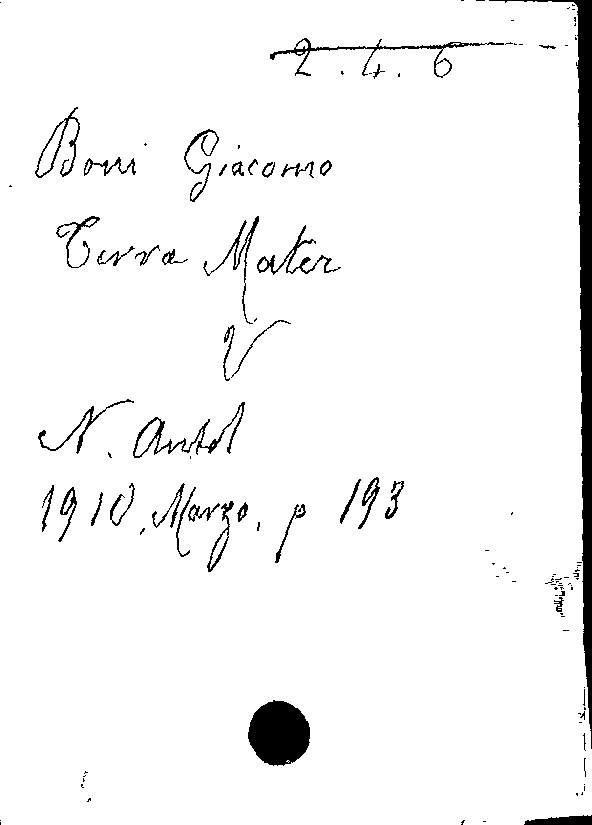 2.4.6
Boni Giacomo
Terra Mater
V
N. Antol
1910, Marzo, p 193